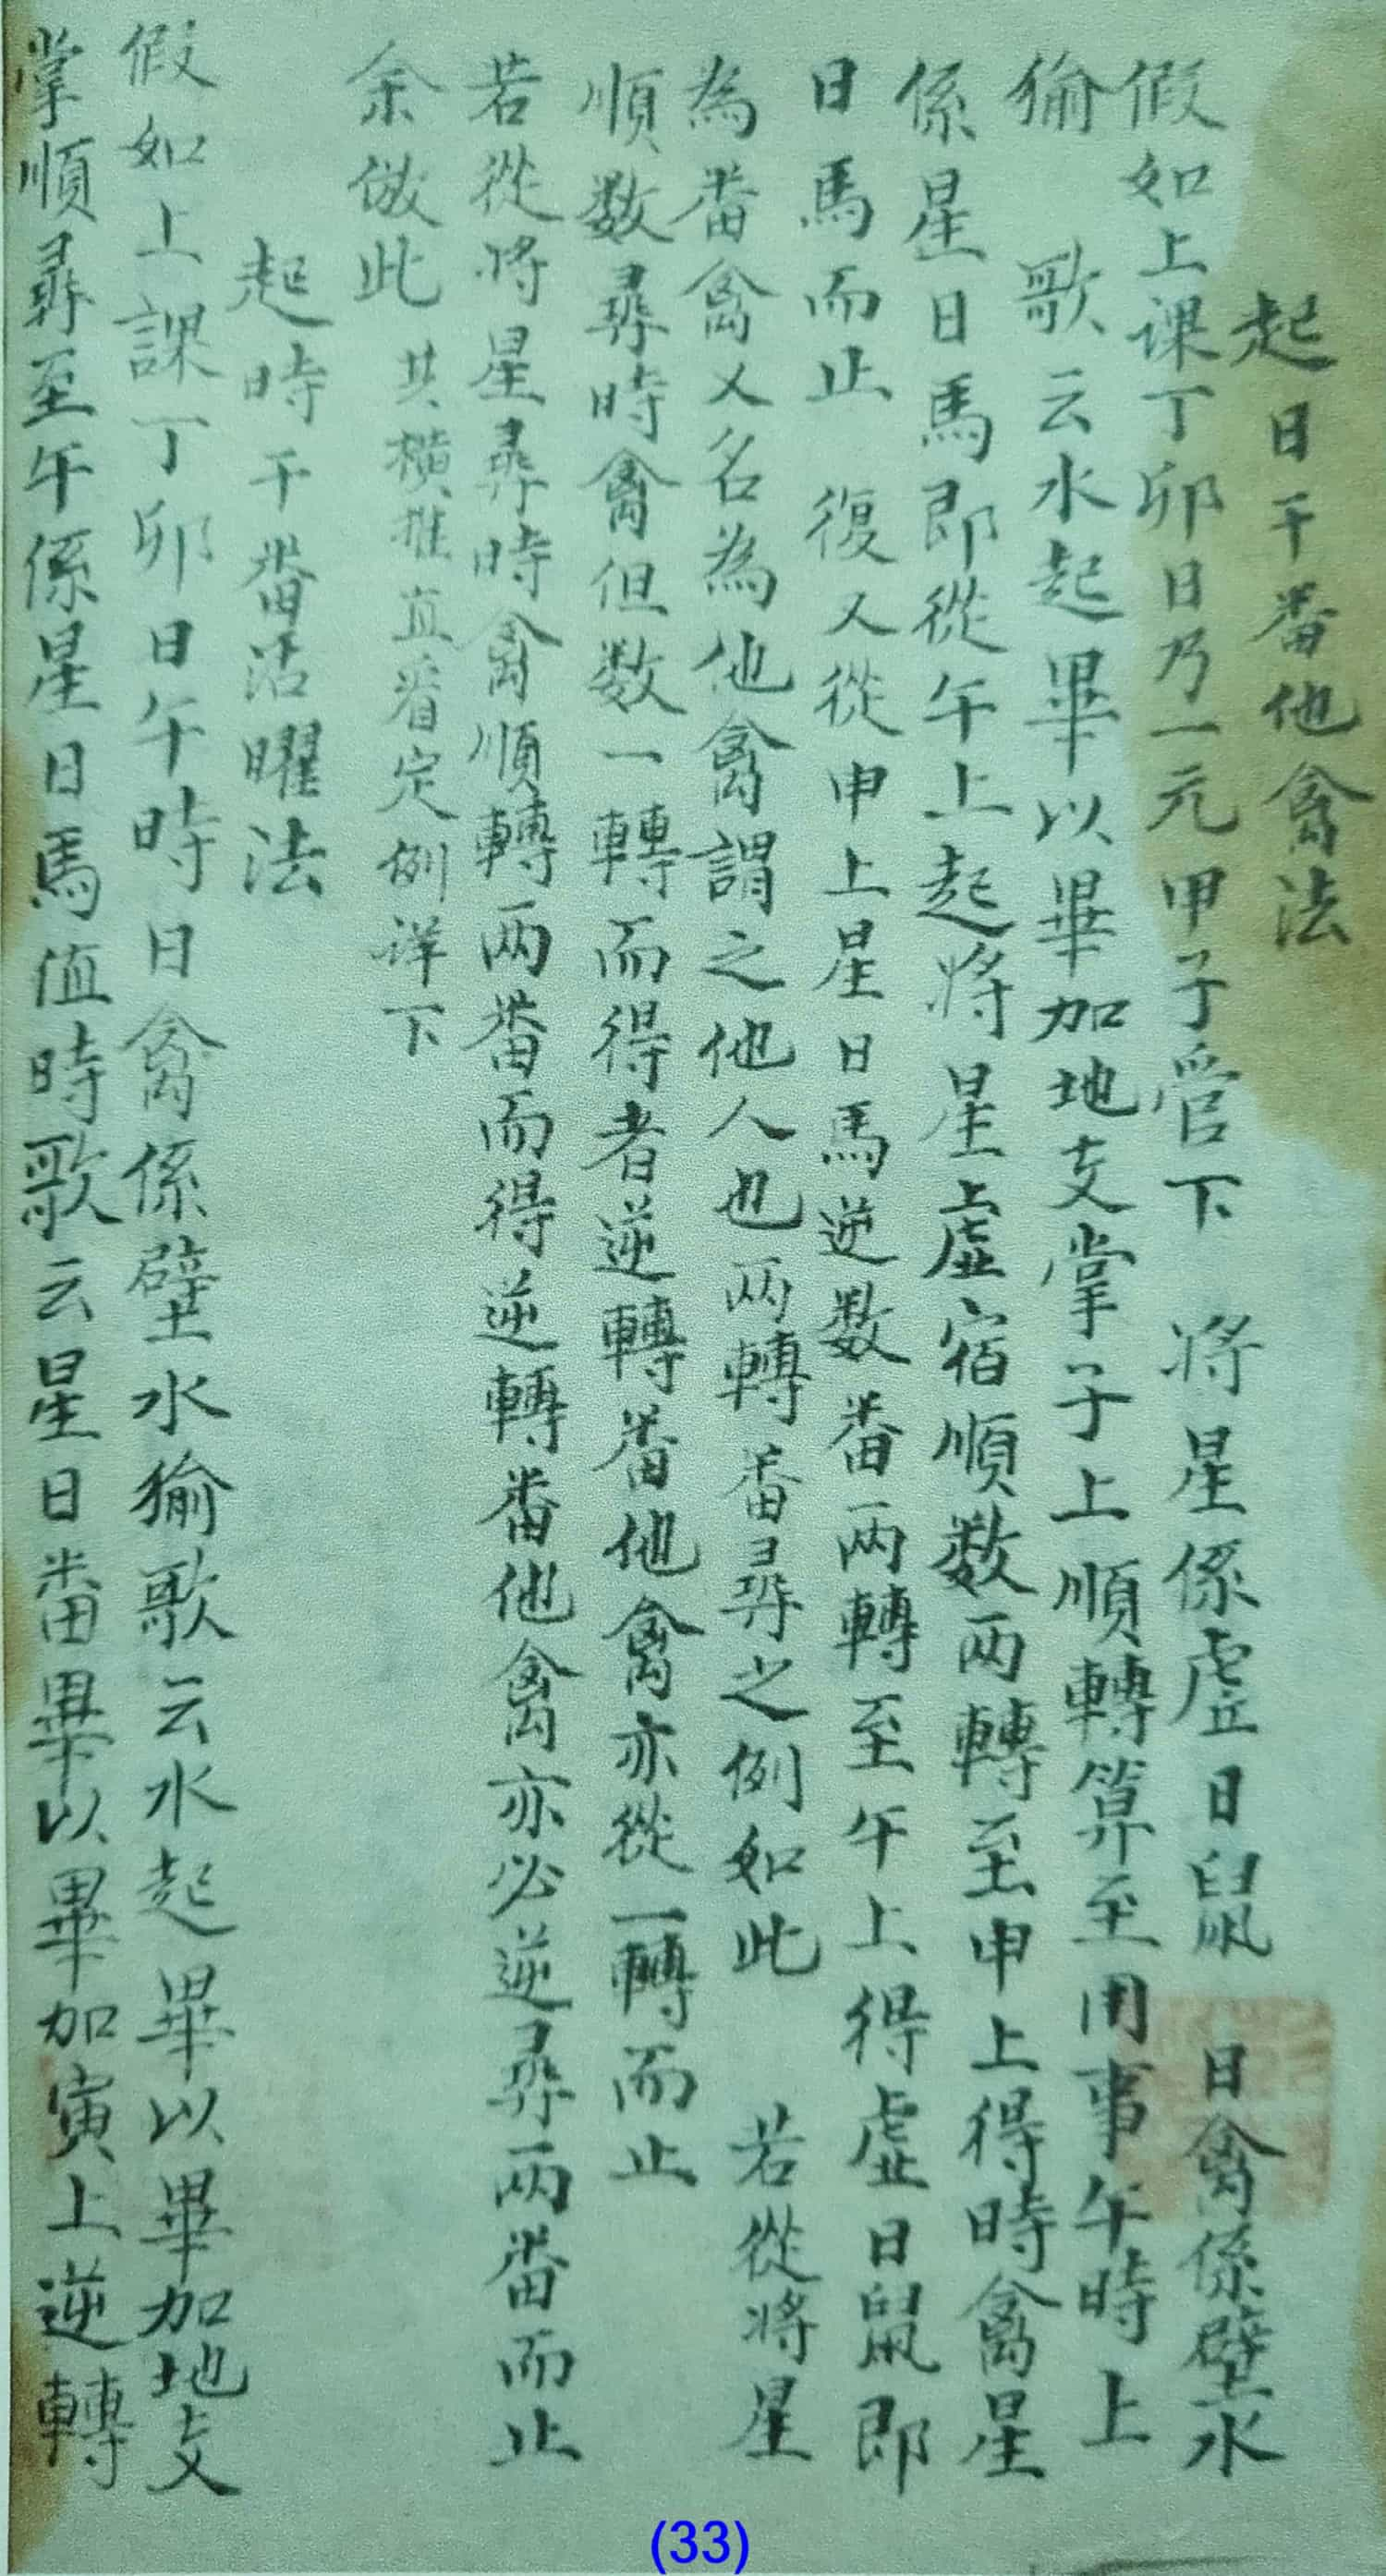 起日干番他禽法
假如上课丁卯日乃一元甲子管下 将星係虚日鼠 日禽係壁水
㺄 歌云水起畢以畢加地支掌子上順轉算至用事午時上
係星日馬即從午上起将星虚宿順数两轉至申上得時禽星
日馬而止 復又從申上星日馬逆数番两轉至午上得虚日鼠即
為番禽又名為他禽謂之他人也两轉番尋之例如此 若從将星
順数尋時禽但数一轉而得者逆轉番他禽亦從一轉而止
若從将星尋時禽順轉两番而得逆轉番他禽亦必逆尋两番而止
余倣此 其横推直看定例详下
起時干番活曜法
假如上課丁卯日午時日禽係壁水㺄歌云水起畢以畢加地支
掌順尋至午係星日馬值時歌云星日番畢以畢加寅上逆轉
(33)